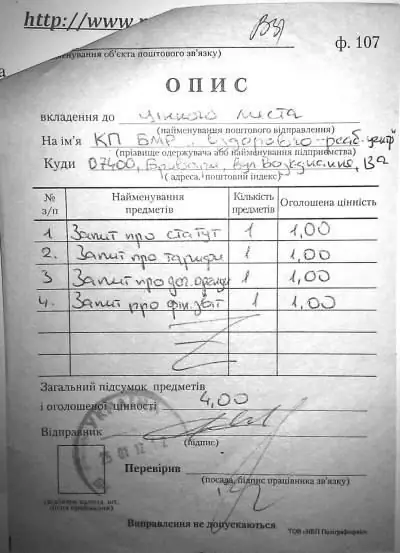 http://www.
ф. 107
(найменування об'єкта поштового зв'язку)
ОПИС
вкладення до цінного листа
(найменування поштового відправлення)
На ім'я КП БМР
(прізвище одержувача або найменування підприємства)
Куди 07400, Бровари, вул Возз'єднання, 13а
(адреса, поштовий індекс)
№ з/п Найменування предметів Кількість предметів Оголошена цінність
1 Запит про статут 1 1,00
2. Запит про тарифи 1 1,00
3 Запит про дог. оренди 1 1,00
4. Запит про фін. звіт 1 1,00
Загальний підсумок предметів
і оголошеної цінності 4,00
Відправник
(підпис)
Перевірив
(посада, підпис працівника зв'язку)
Виправлення не допускаються